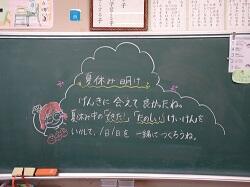 夏休み明け
げんきに会えて良かったね。
夏休み中の「できた!」「たのしい」けいけんを
いかして、1日1日を一緒につくろうね。